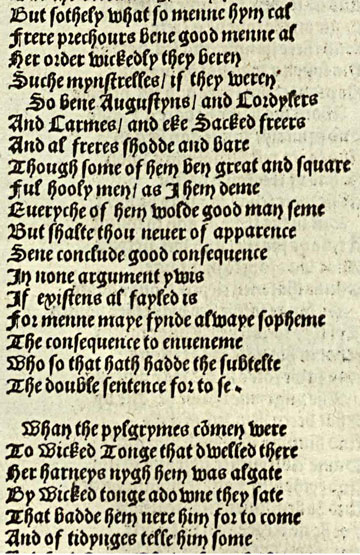 But sothely what so menne hym cal
Frere prechours bene good menne al
Her order wickedly they beren
Suche mynstrelles/ if they weren
So bene Augustyns/ and Cordylers
And Carmes/ and eke Sacked freers
And al freres shodde and bare
Though some of hem ben great and square
Ful hooly men/ as I hem deme
Eueryche of hem wolde good man seme
But shalte thou neuer of apparence
Sene conclude good consequence
In none argument ywis
If existens al fayled is
For menne maye fynde alwaye sopheme
The consequence to enueneme
Who so that hath hadde the subtelte
The double sentence for to se.
Whan the pylgrymes cōmen were
To Wicked Tonge that dwelled there
Her harneys nygh hem was algate
By Wicked tonge adowne they sate
That badde hem nere him for to come
And of tidynges telle him some